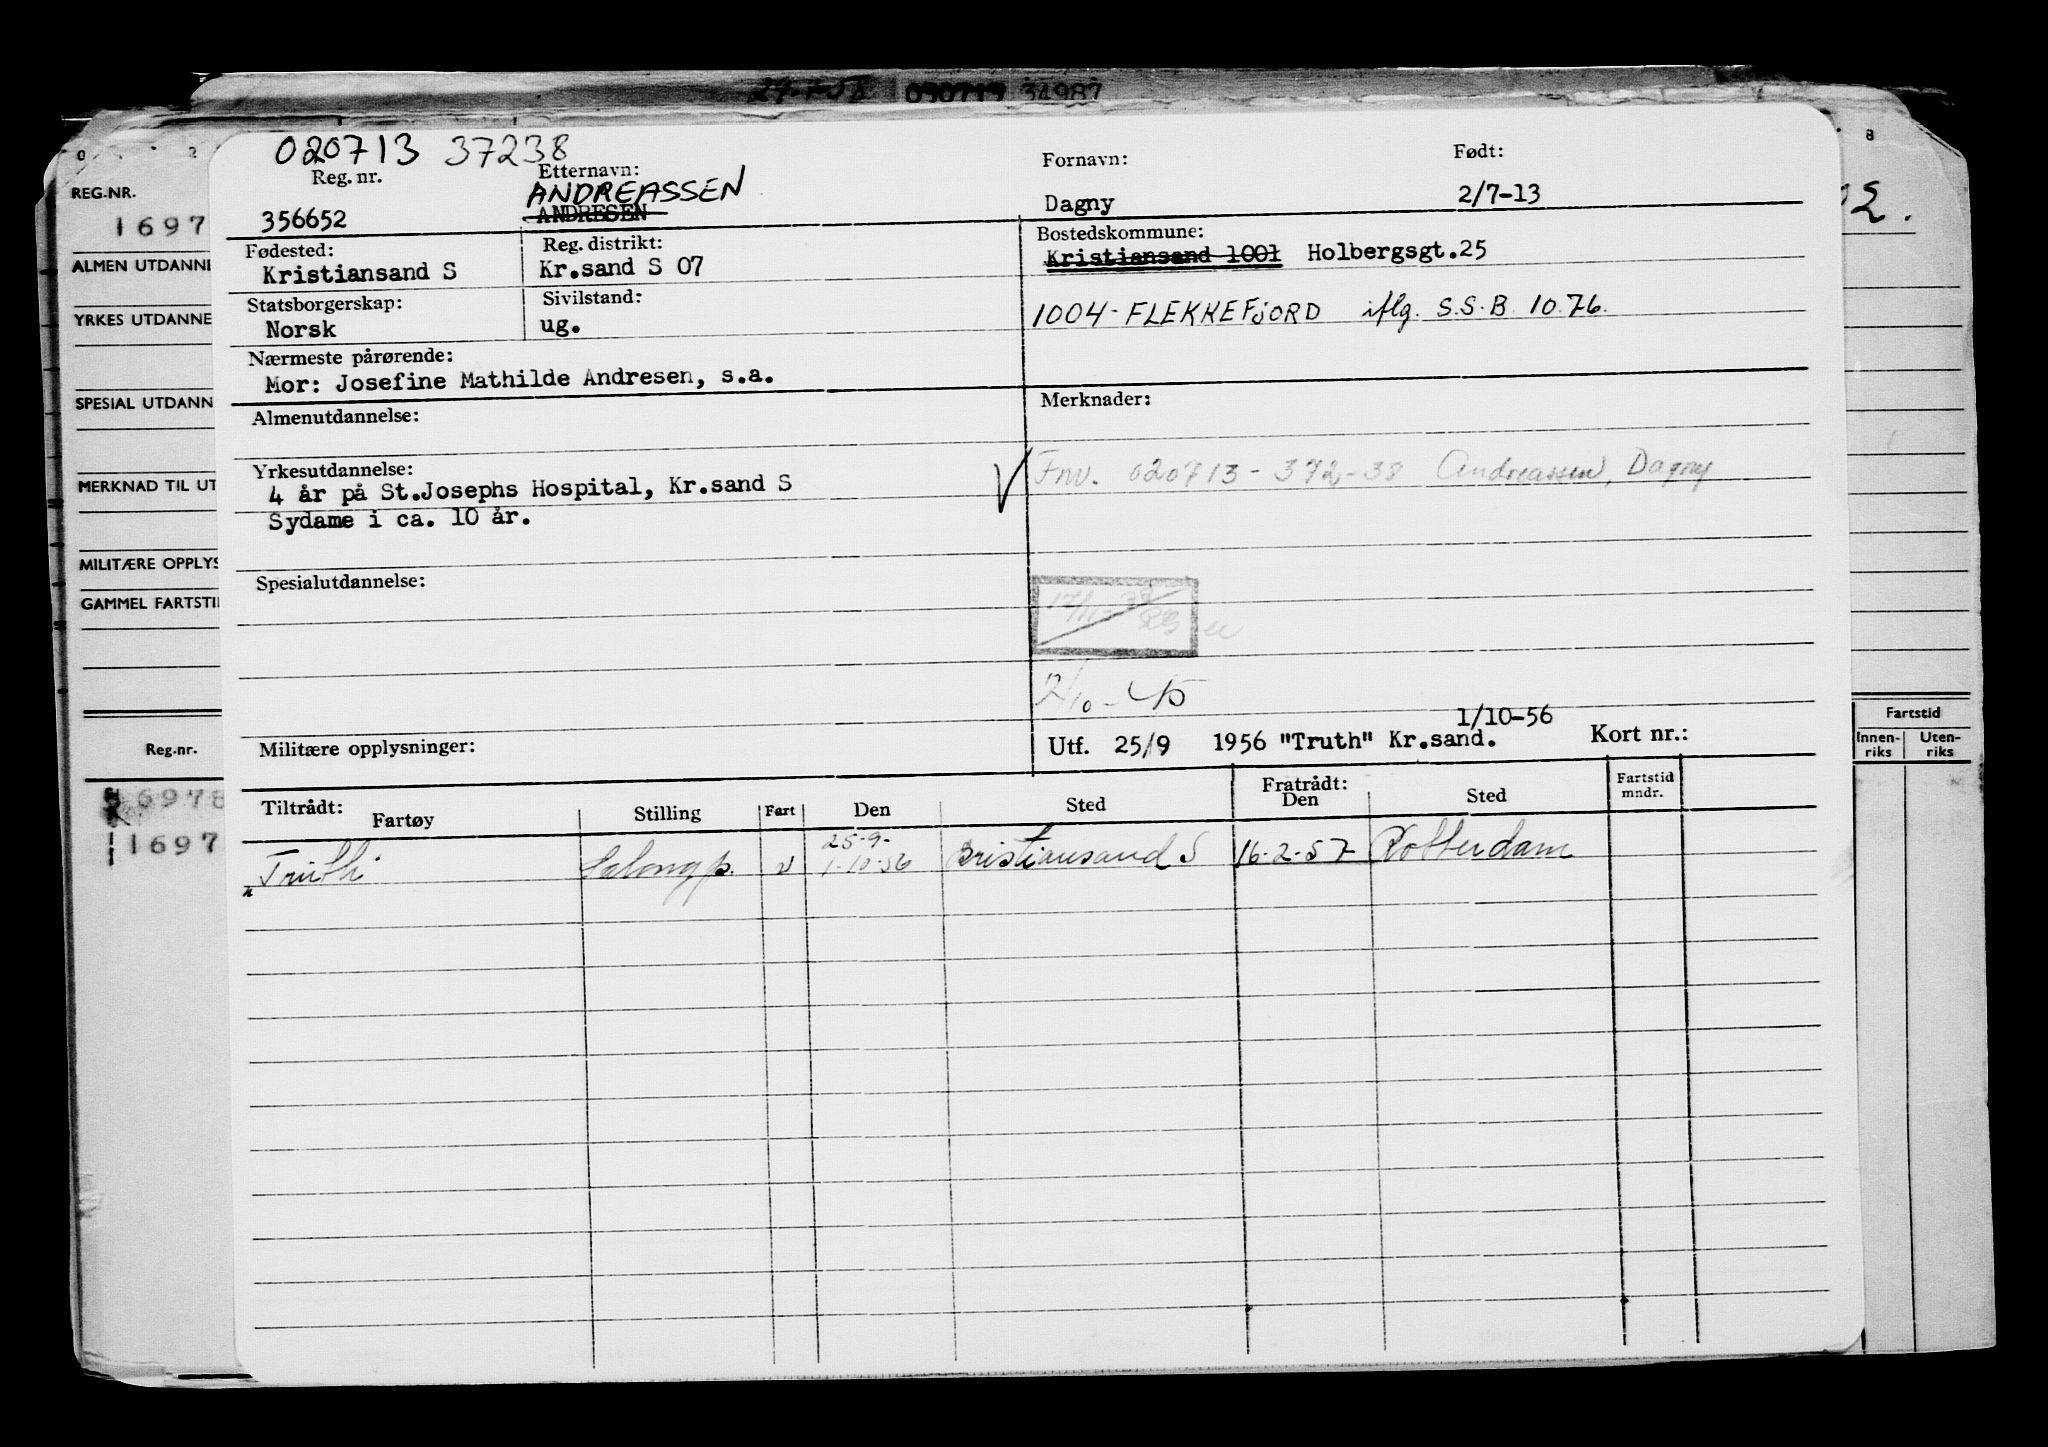 29-1-58 090719 34987
0 2 8
REG.NR.
1697
ALMEN UTDANNE
YRKES UTDANNE
SPESIAL UTDANN
MERKNAD TIL UT
MILITÆRE OPPLYS
GAMMEL FARTSTI
Reg.-nr.
16978
1697
020713 37238
Reg. nr. Etternavn: Fornavn: Født:
ANDREASSEN
356652 ANDRESEN Dagny 2/7-13
Fødested: Reg. distrikt: Bostedskommune:
Kristiansand S Kr.sand S 07 Kristiansand 1001 Holbergsgt.25
Statsborgerskap: Sivilstand:
Norsk ug. 1004-FLEKKEFJORD iflg. S.S.B. 10.76.
Nærmeste pårørende:
Mor: Josefine Mathilde Andresen, s.a.
Almenutdannelse: Merknader:
Yrkesutdannelse:
Fnv. 020713-372-38 Andreassen, Dagny
4 år på St.Josephs Hospital, Kr.sand S
Sydame i ca. 10 år.
Spesialutdannelse:
2/10-45
1/10-56
Militære opplysninger: Utf. 25/9 1956 "Truth" Kr.sand. Kort nr.:
Tiltrådt: Fartøy Stilling Fart Den Sted Fratrådt: Den Sted Fartstid mndr.
25-9-
"Truth Salongp. u 1-10-56 Kristiansand S 16-2-57 Rotterdam
2.
Fartstid
Innen-riks Uten-riks